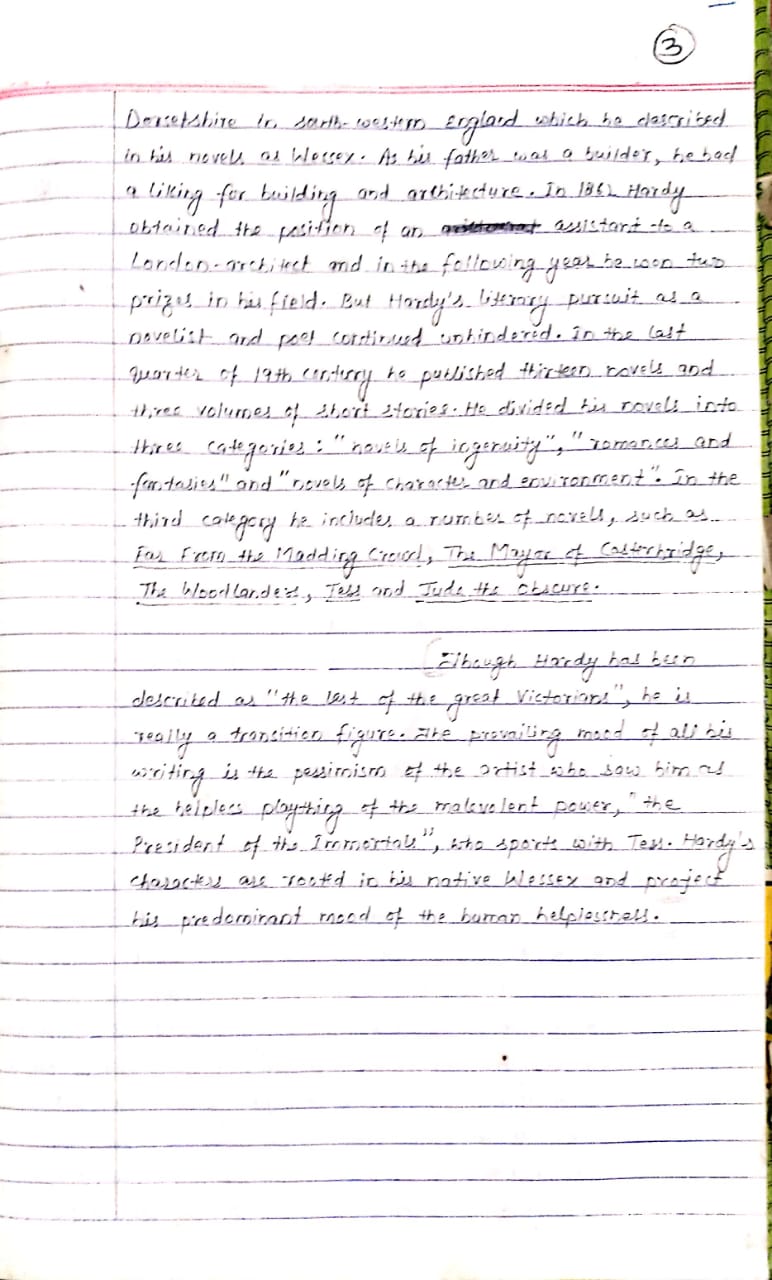 3
Dorsetshire in south-western England which he described
in his novels as Wessex. As his father was a builder, he had
a liking for building and architecture. In 1862 Hardy
obtained the position of an assistant to a
London-architect and in the following year he won two
prizes in his field. But Hardy's literary pursuit as a
novelist and poet continued unhindered. In the last
quarter of 19th century he published thirteen novels and
three volumes of short stories. He divided his novels into
three categories: "novels of ingenuity", "romances and
fantasies" and "novels of character and environment". In the
third category he includes a number of novels, such as
Far From the Madding Crowd, The Mayor of Casterbridge,
The Woodlanders, Tess and Jude the obscure.
Though Hardy has been
described as "the last of the great Victorians", he is
really a transition figure. The prevailing mood of all his
writing is the pessimism of the artist who saw him as
the helpless plaything of the malevolent power, "the
President of the Immortals", who sports with Tess. Hardy's
characters are rooted in his native Wessex and project
his predominant mood of the human helplessness.